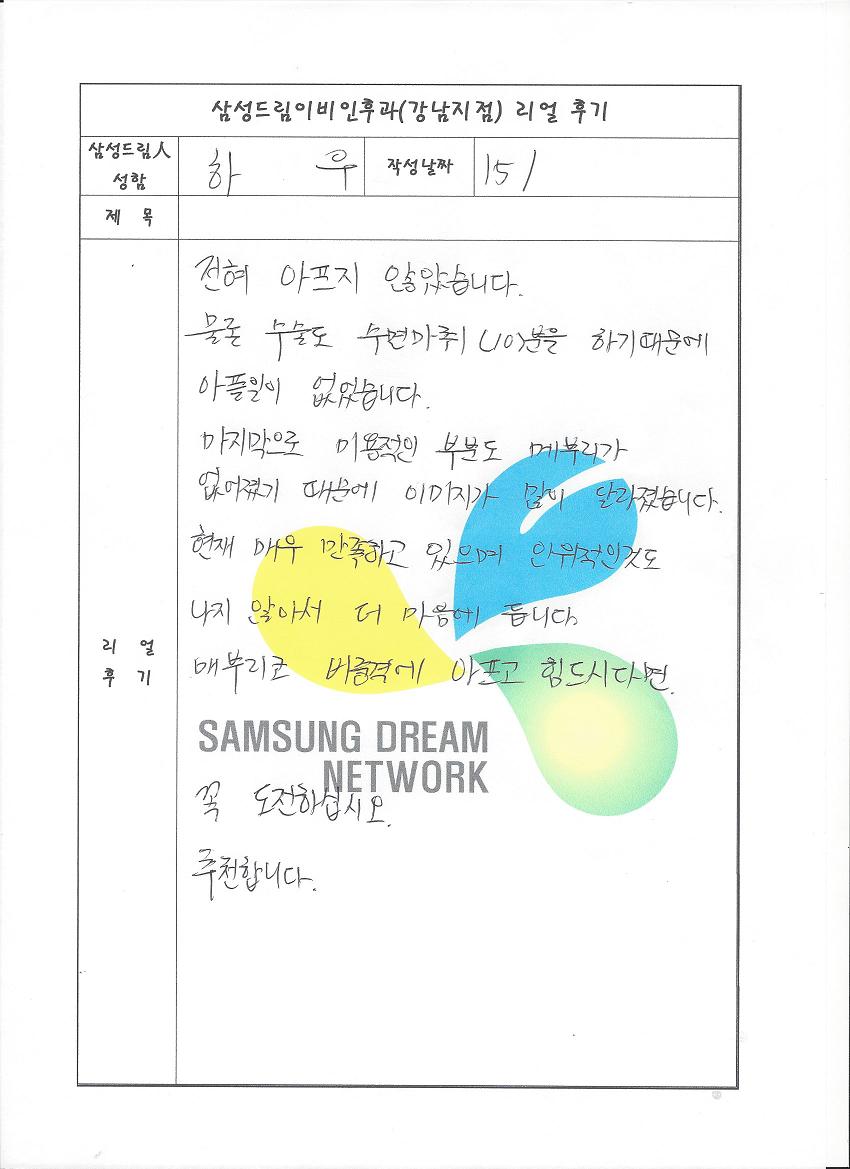 삼성드림이비인후과(강남지점) 리얼 후기
삼성드림人
성함
하 우
작성날짜
151
제 목
전혀 아프지 않았습니다.
물론 수술도 수면마취 (10)분을 하기때문에
아플일이 없었습니다.
마지막으로 미용적인 부분도 메부리가
없어졌기 때문에 이미지가 많이 달라졌습니다.
현재 매우 만족하고 있으며 인위적인것도
나지 않아서 더 마음에 듭니다.
리 얼
후 기
매부리코 비중격에 아프고 힘드시다면.
SAMSUNG DREAM
NETWORK
꼭 도전하십시오.
추천합니다.